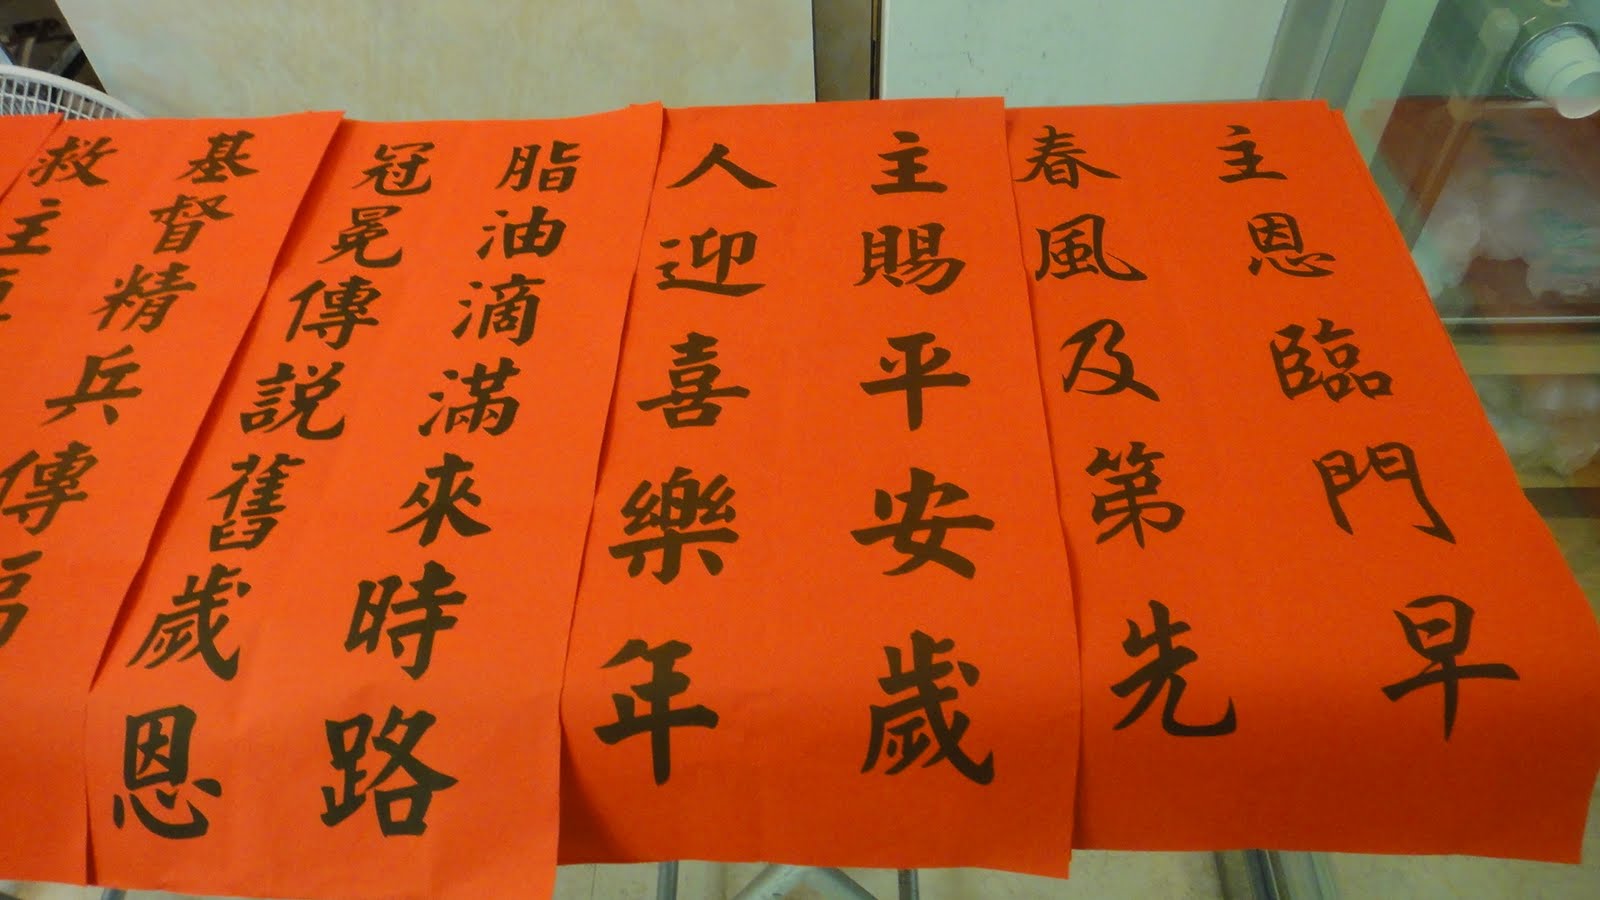 主恩臨門早
春風及第先
主賜平安歲
人迎喜樂年
脂油滴滿來時路
冠冕傳說舊歲恩
基督精兵傳福
救主